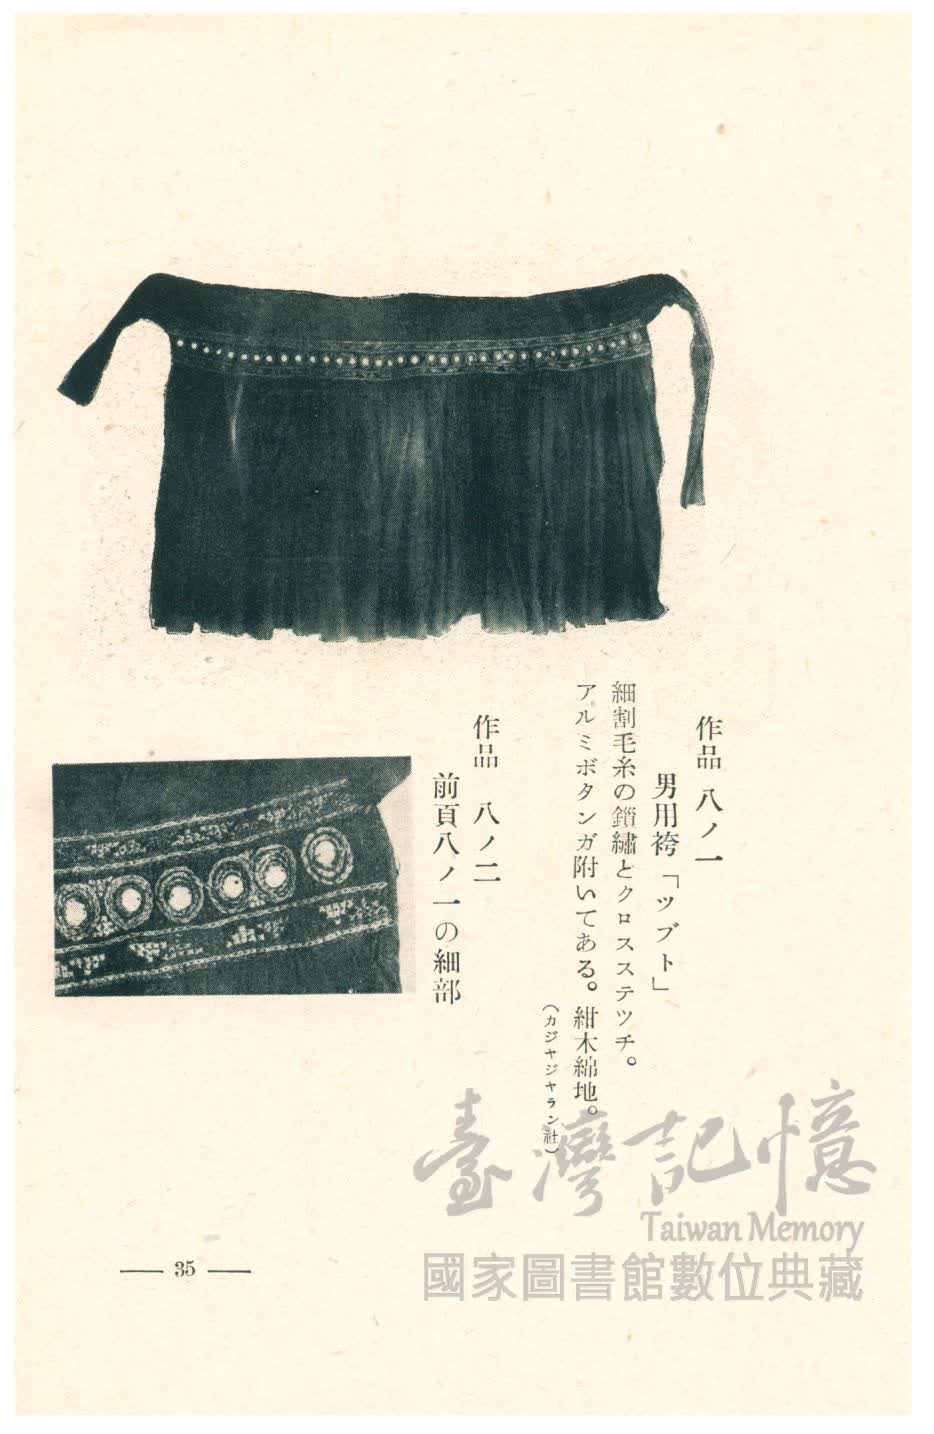 作品 八ノ一
男用袴「ツブト」
細割毛糸の鎖繡とクロスステツチ。
アルミボタンガ附いてある。紺木綿地。
(カジヤジヤラン社)
作品 八ノ二
前頁八ノ一の細部
35
臺灣記憶
Taiwan Memory
國家圖書館數位典藏